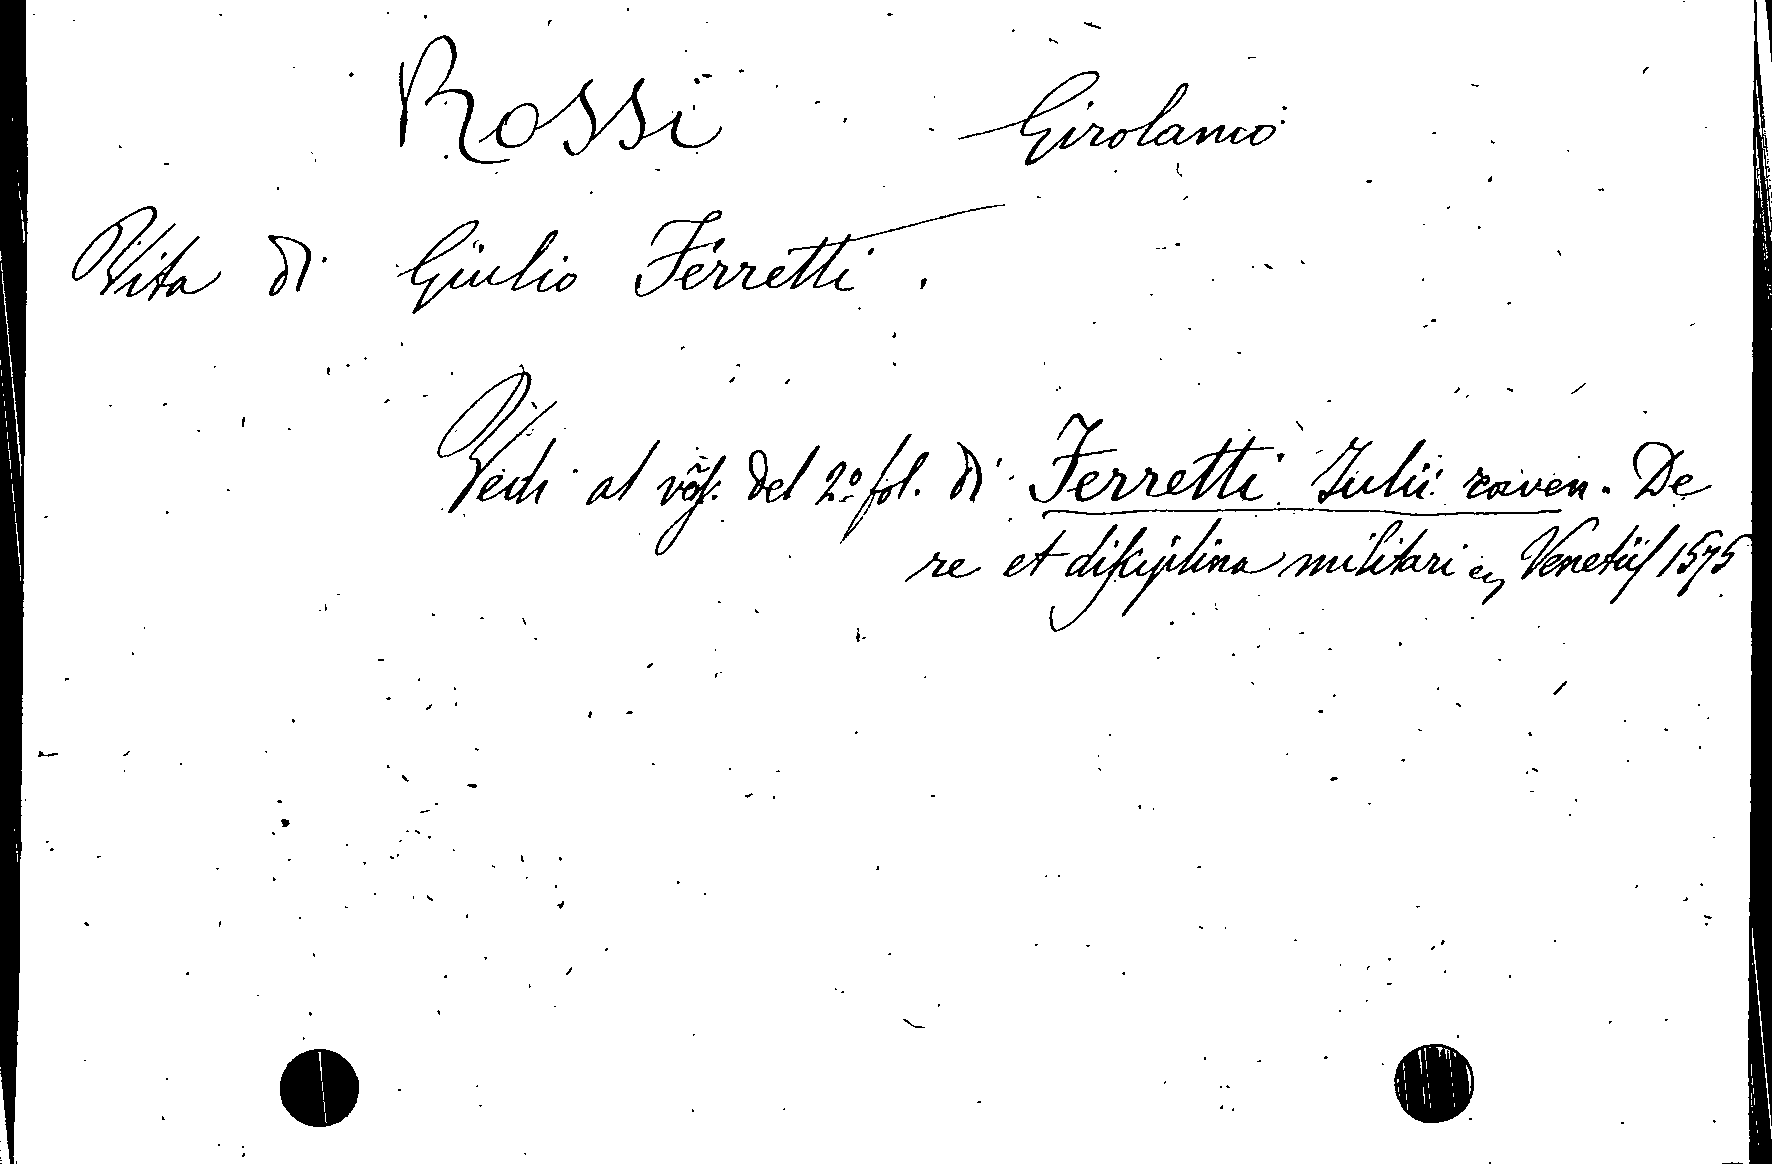 Rossi Girolamo
Vita di Giulio Ferretti.
Vedi al v. del 2º fol. di Ferretti Julii raven. De
re et disciplina militari Venetiis 1575